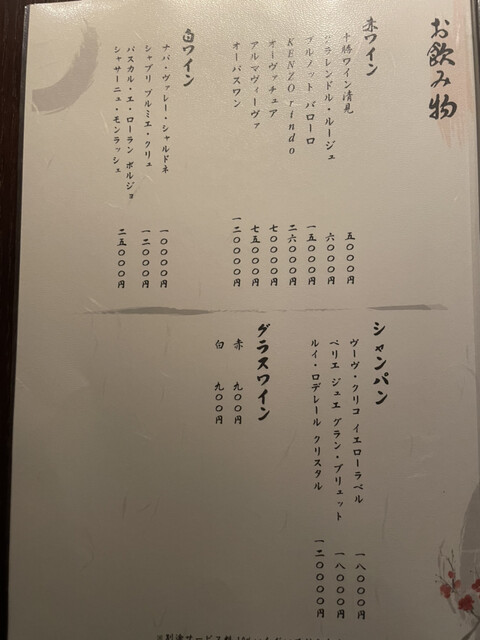 お飲み物
赤ワイン
十勝ワイン清見 五〇〇〇円
クラレンドル・ルージュ 六〇〇〇円
プルノット バローロ 一五〇〇〇円
KENZO rindo 二六〇〇〇円
オーヴァチュア 七〇〇〇〇円
アルマヴィーヴァ 七五〇〇〇円
オーパスワン 一二〇〇〇〇円
白ワイン
ナパ・ヴァレー・シャルドネ 一〇〇〇〇円
シャブリ プルミエ・クリュ 一二〇〇〇円
パスカル・エ・ローラン ボルジョ
シャサーニュ・モンラッシェ 二五〇〇〇円
シャンパン
ヴーヴ・クリコ イエローラベル 一八〇〇〇円
ペリエ ジュエ グラン・ブリュット 一八〇〇〇円
ルイ・ロデレール クリスタル 一二〇〇〇〇円
グラスワイン
赤 九〇〇円
白 九〇〇円
※別途サービス料